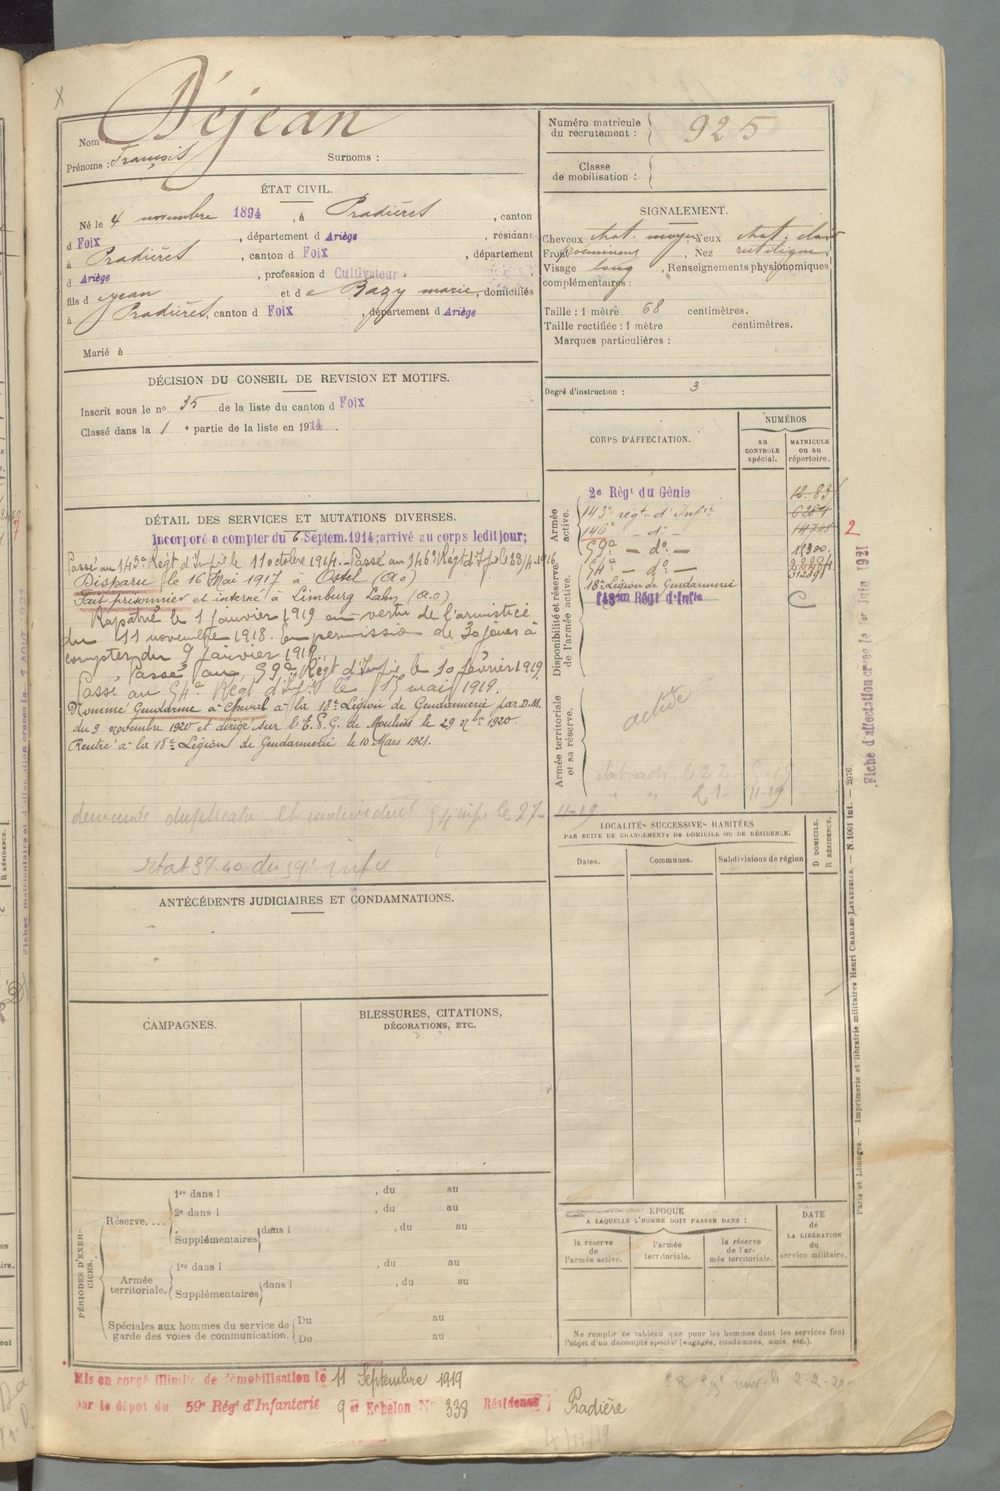 Nom Déjean
Prénoms : François Surnoms :
Numéro matricule du recrutement : 925
Classe de mobilisation :
ÉTAT CIVIL.
Né le 4 novembre 1894, à Pradières, canton
d Foix, département d Ariège, résidant
à Pradières, canton d Foix, département
d Ariège, profession d Cultivateur
fils d e Jean et d e Bazy marie, domiciliés
à Pradières, canton d Foix, département d Ariège
Marié à
SIGNALEMENT.
Cheveux chat. moyen Yeux chat. clair
Front proéminent, Nez rectiligne
Visage long, Renseignements physionomiques
complémentaires :
Taille : 1 mètre 68 centimètres.
Taille rectifiée : 1 mètre centimètres.
Marques particulières :
Degré d'instruction : 3
DÉCISION DU CONSEIL DE REVISION ET MOTIFS.
Inscrit sous le nº 35 de la liste du canton d Foix
Classé dans la 1 e partie de la liste en 1914.
DÉTAIL DES SERVICES ET MUTATIONS DIVERSES.
Incorporé à compter du 6 Septem. 1914; arrivé au corps ledit jour;
Passé au 143e Régt d'Infie le 11 octobre 1914. - Passé au 146e Régt d'Infie le 28/4-1916
Disparu le 16 Mai 1917 à Ostel (A.O)
Fait prisonnier et interné à Limburg Lahn (A.O)
Rapatrié le 1 janvier 1919 en vertu de l'armistice
du 11 novembre 1918. En permission de 30 jours à
compter du 9 Janvier 1919
Passé au 59e Régt d'Infie le 10 février 1919
Passé au 54e Régt d'Infie le 15 mai 1919.
Nommé Gendarme à Cheval à la 18e Légion de Gendarmerie par D.M.
du 9 novembre 1920 et dirigé sur l'E.P.G. de Moulins le 29 9bre 1920.
Rentré à la 18e Légion de Gendarmerie le 10 Mars 1921.
demande duplicata et individuel inf le 27-11-19
état 39.40 du 59e infie
CORPS D'AFFECTATION.
NUMÉROS
AU CONTROLE spécial.
MATRICULE ou au répertoire.
Armée active.
2e Régt du Génie
143e régt d'Infie
146e - d° -
59e - d° -
Disponibilité et réserve de l'armée active.
54e - d° -
18e Légion de Gendarmerie
C
Armée territoriale et sa réserve.
active
2
LOCALITÉS SUCCESSIVES HABITÉES
PAR SUITE DE CHANGEMENTS DE DOMICILE OU DE RÉSIDENCE.
Dates.
Communes.
Subdivisions de région
D DOMICILE.
R RÉSIDENCE.
ANTÉCÉDENTS JUDICIAIRES ET CONDAMNATIONS.
CAMPAGNES.
BLESSURES, CITATIONS,
DÉCORATIONS, ETC.
PÉRIODES D'EXERCICES.
Réserve....
1re dans l , du au
2e dans l , du au
Supplémentaires dans l , du au
Armée territoriale.
1re dans l , du au
Supplémentaires dans l , du au
Spéciales aux hommes du service de
garde des voies de communication.
Du au
Du au
ÉPOQUE
A LAQUELLE L'HOMME DOIT PASSER DANS :
la réserve de l'armée active.
l'armée territoriale.
la réserve de l'armée territoriale.
DATE de LA LIBÉRATION du service militaire.
Ne remplir ce tableau que pour les hommes dont les services font
l'objet d'un décompte spécial (engagés, condamnés, omis, etc.).
Mis en congé illimité de démobilisation le 11 Septembre 1919
par le dépot du 59e Régt d'Infanterie 9 e Echelon Nº 338 Résidence : Pradière
Fiche d'affectation créée le 1er Juin 1921
Paris et Limoges. — Imprimerie et librairie militaires Henri CHARLES-LAVAUZELLE.